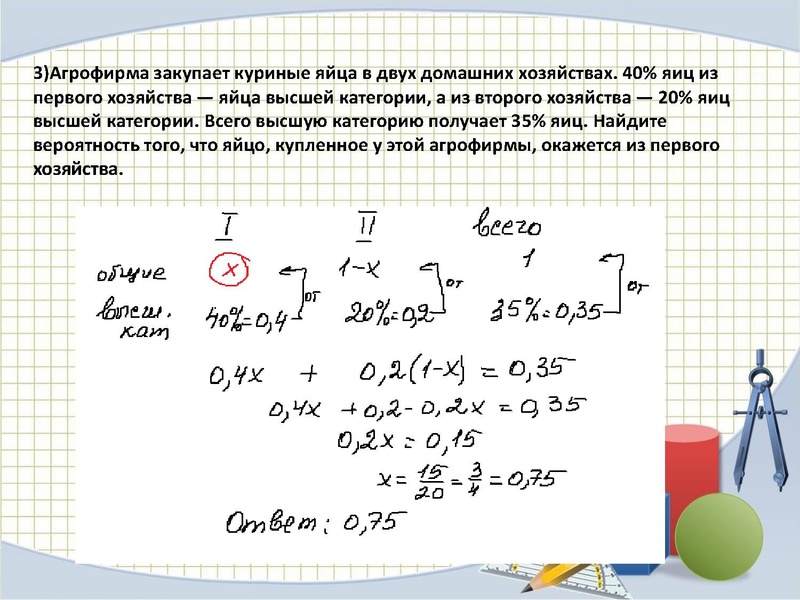 3)Агрофирма закупает куриные яйца в двух домашних хозяйствах. 40% яиц из
первого хозяйства — яйца высшей категории, а из второго хозяйства — 20% яиц
высшей категории. Всего высшую категорию получает 35% яиц. Найдите
вероятность того, что яйцо, купленное у этой агрофирмы, окажется из первого
хозяйства.
I II всего
общие x от 1-x от 1 от
высш. кат 40%=0,4 20%=0,2 35%=0,35
0,4x + 0,2(1-x) = 0,35
0,4x + 0,2 - 0,2x = 0,35
0,2x = 0,15
x = 15/20 = 3/4 = 0,75
Ответ: 0,75